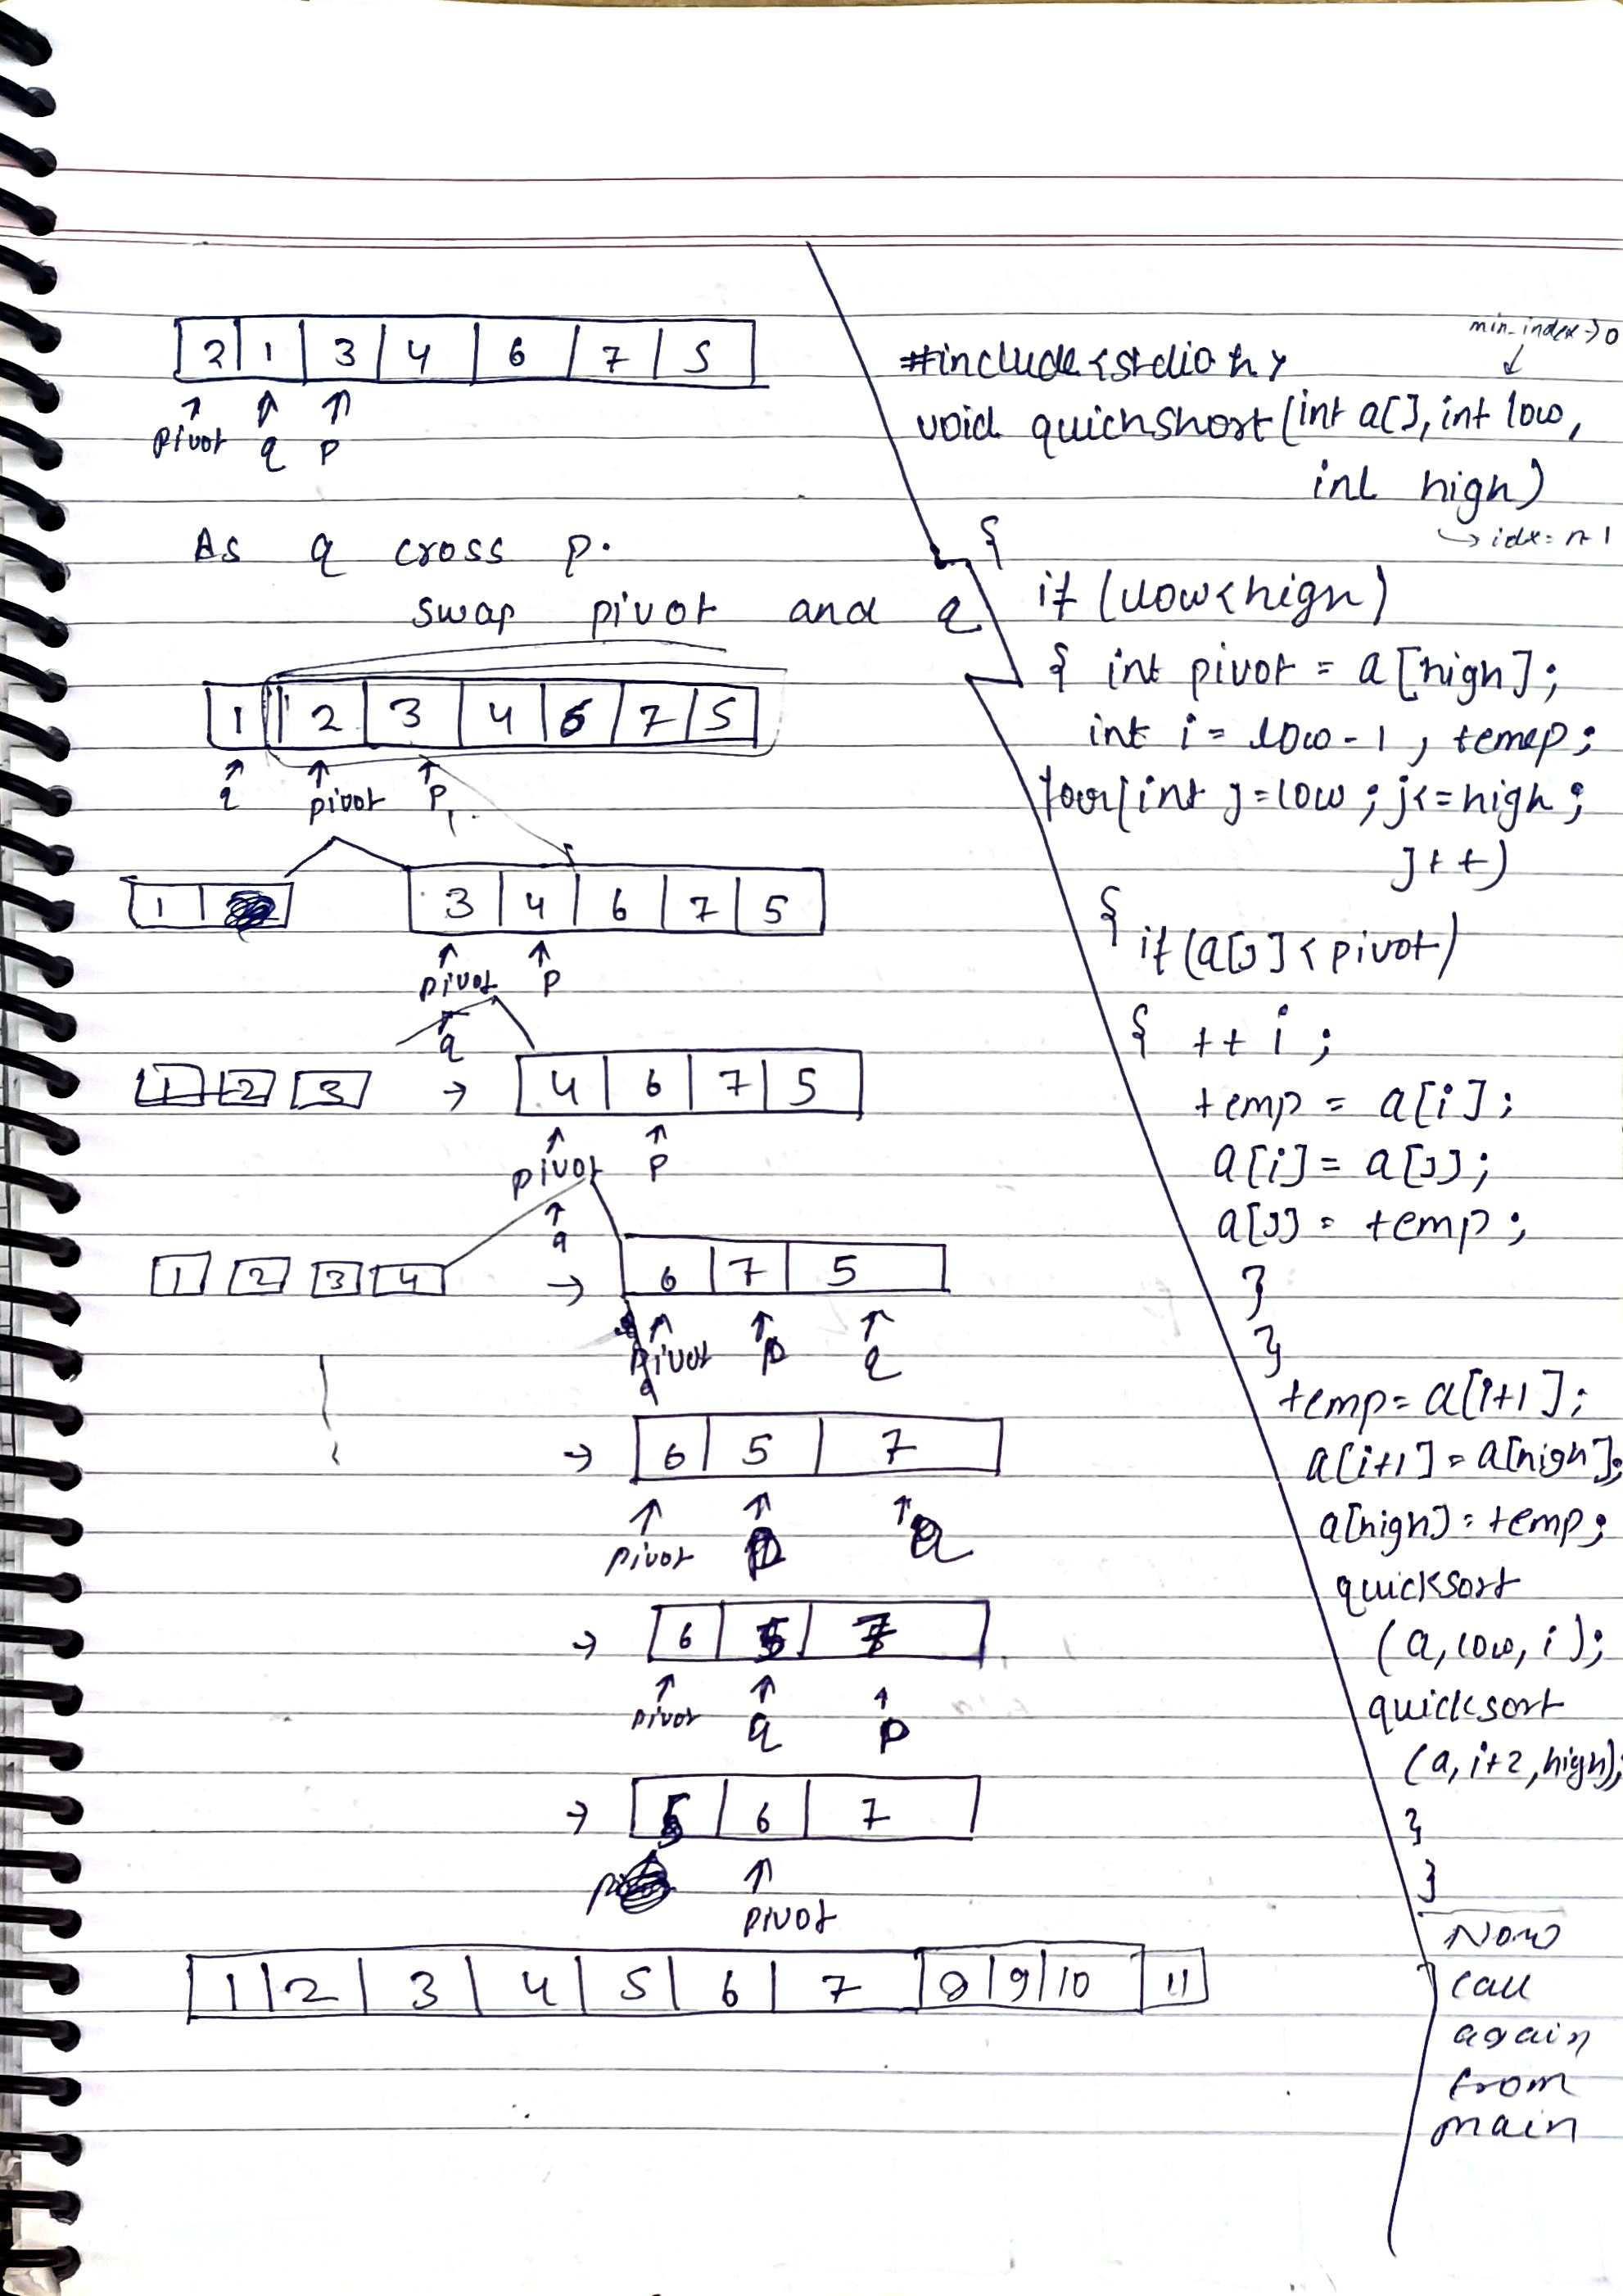 2 1 3 4 6 7 5
pivot q p
As q cross p.
swap pivot and q
1 2 3 4 6 7 5
q pivot p
1 3 4 6 7 5
pivot p
q
1 2 3 → 4 6 7 5
pivot p
q
1 2 3 4 → 6 7 5
pivot p q
q
→ 6 5 7
pivot p q
→ 6 5 7
pivot q p
→ 5 6 7
pivot
1 2 3 4 5 6 7 8 9 10 11
min_index→0
#include<stdio h>
void quickshort(int a[], int low,
int high)
→ idx = n-1
{
if (low<high)
{ int pivot = a[high];
int i = low-1, temp;
for(int j=low; j<=high;
j++)
{
if(a[j]<pivot)
{ ++i;
temp = a[i];
a[i] = a[j];
a[j] = temp;
}
}
temp = a[i+1];
a[i+1] = a[high];
a[high] = temp;
quicksort
(a, low, i);
quicksort
(a, i+2, high);
}
}
Now
call
again
from
main